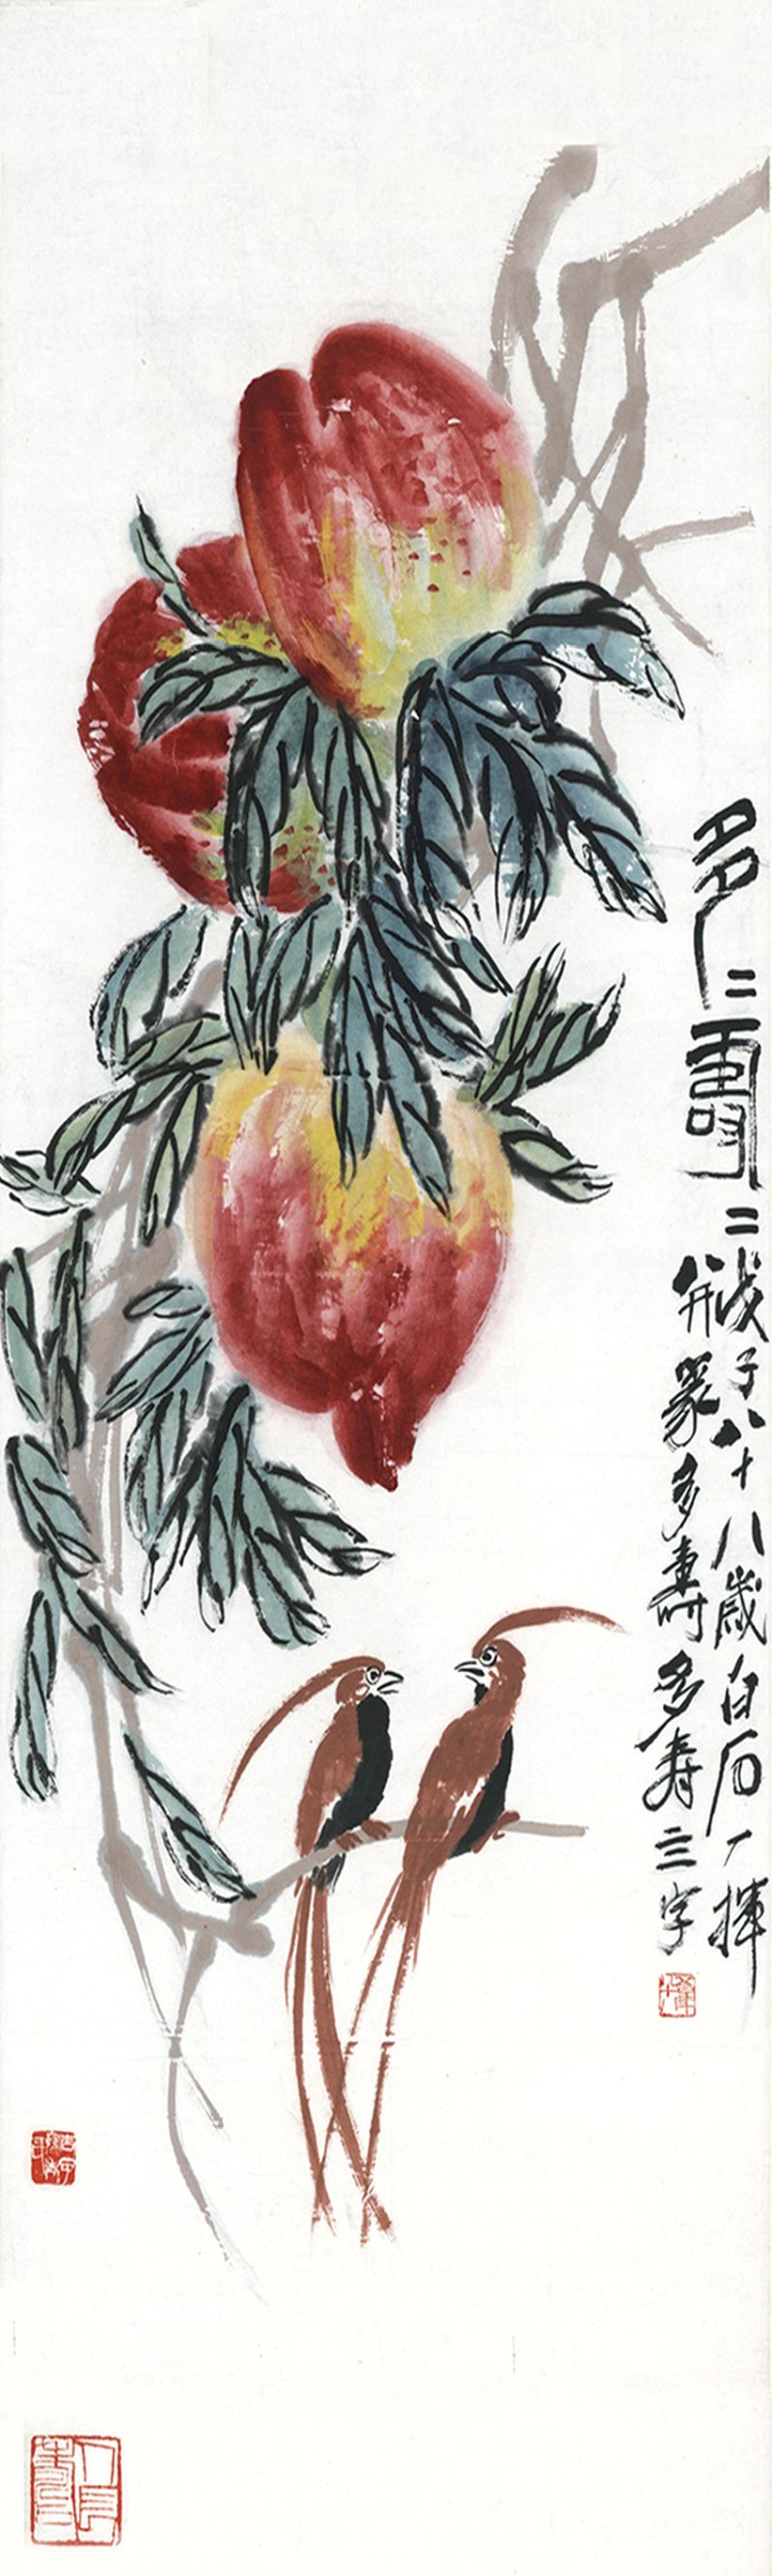 多二壽二戊子八十八歲白石一揮
并篆多壽多寿三字